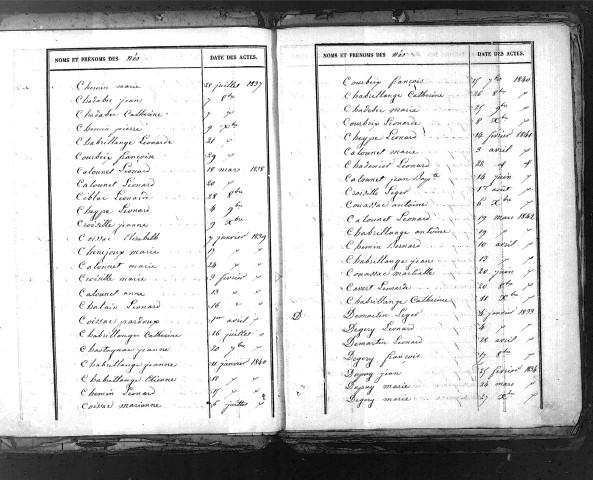 NOMS ET PRÉNOMS DES nés DATE DES ACTES.
Chemin marie 28 juillet 1837
Chadebec jean 7 8bre
Chadebec Catherine 7 〃
Chemin pierre 9 Xbre
Chabrillange Léonarde 21 〃
Courbeix françoise 29 〃
Calounet Léonard 18 mars 1838
Calounet Léonard 20 〃
Léonarde 28 8bre
Cheype Léonard 4 9bre
Croisille jeanne 9 Xbre
Coissac Elisabeth 7 janvier 1839
Chenejoux marie 17 〃 〃
Calounet marie 24 〃 〃
Croisille marie 9 février 〃
Calounet anne 13 〃 〃
Chalain Léonard 16 〃 〃
Coissac pardoux 1er avril 〃
Chabrillange Catherine 16 juillet 〃
Chastagnac jeanne 20 7bre 〃
Chabrillange jeanne 11 janvier 1840
Chabrillange Etienne 15 〃 〃
Chemin Léonard 15 〃 〃
Coissac marianne 6 juillet 〃
NOMS ET PRÉNOMS DES nés DATE DES ACTES.
Courbeix françois 15 7bre 1840
Chabrillange Catherine 26 8bre 〃
Chadebec marie 25 9bre 〃
Courbeix Léonarde 8 Xbre 〃
Cheype Léonard 14 février 1841
Calounet marie 3 avril 〃
Chadenier Léonard 28 〃 〃
Calounet jean Bapte 14 juin 〃
Croisille Léger 1er août 〃
Couassac antoine 6 Xbre 〃
Calounet Léonard 19 mars 1842
Chabrillange antoine 19 〃 〃
Chemin Bernard 10 avril 〃
Chabrillange jean 13 〃 〃
Couassac martialle 20 juin 〃
Cavert Léonard 20 8bre 〃
Chabrillange Catherine 11 Xbre 〃
D Demartin Léger 4 janvier 1833
Degery Léonard 4 〃 〃
Demartin Léonard 28 avril 〃
Degery françois 17 8bre 〃
Dupuy jean 25 février 1834
Dupuy marie 24 mars 〃
Degery marie 27 Xbre 〃